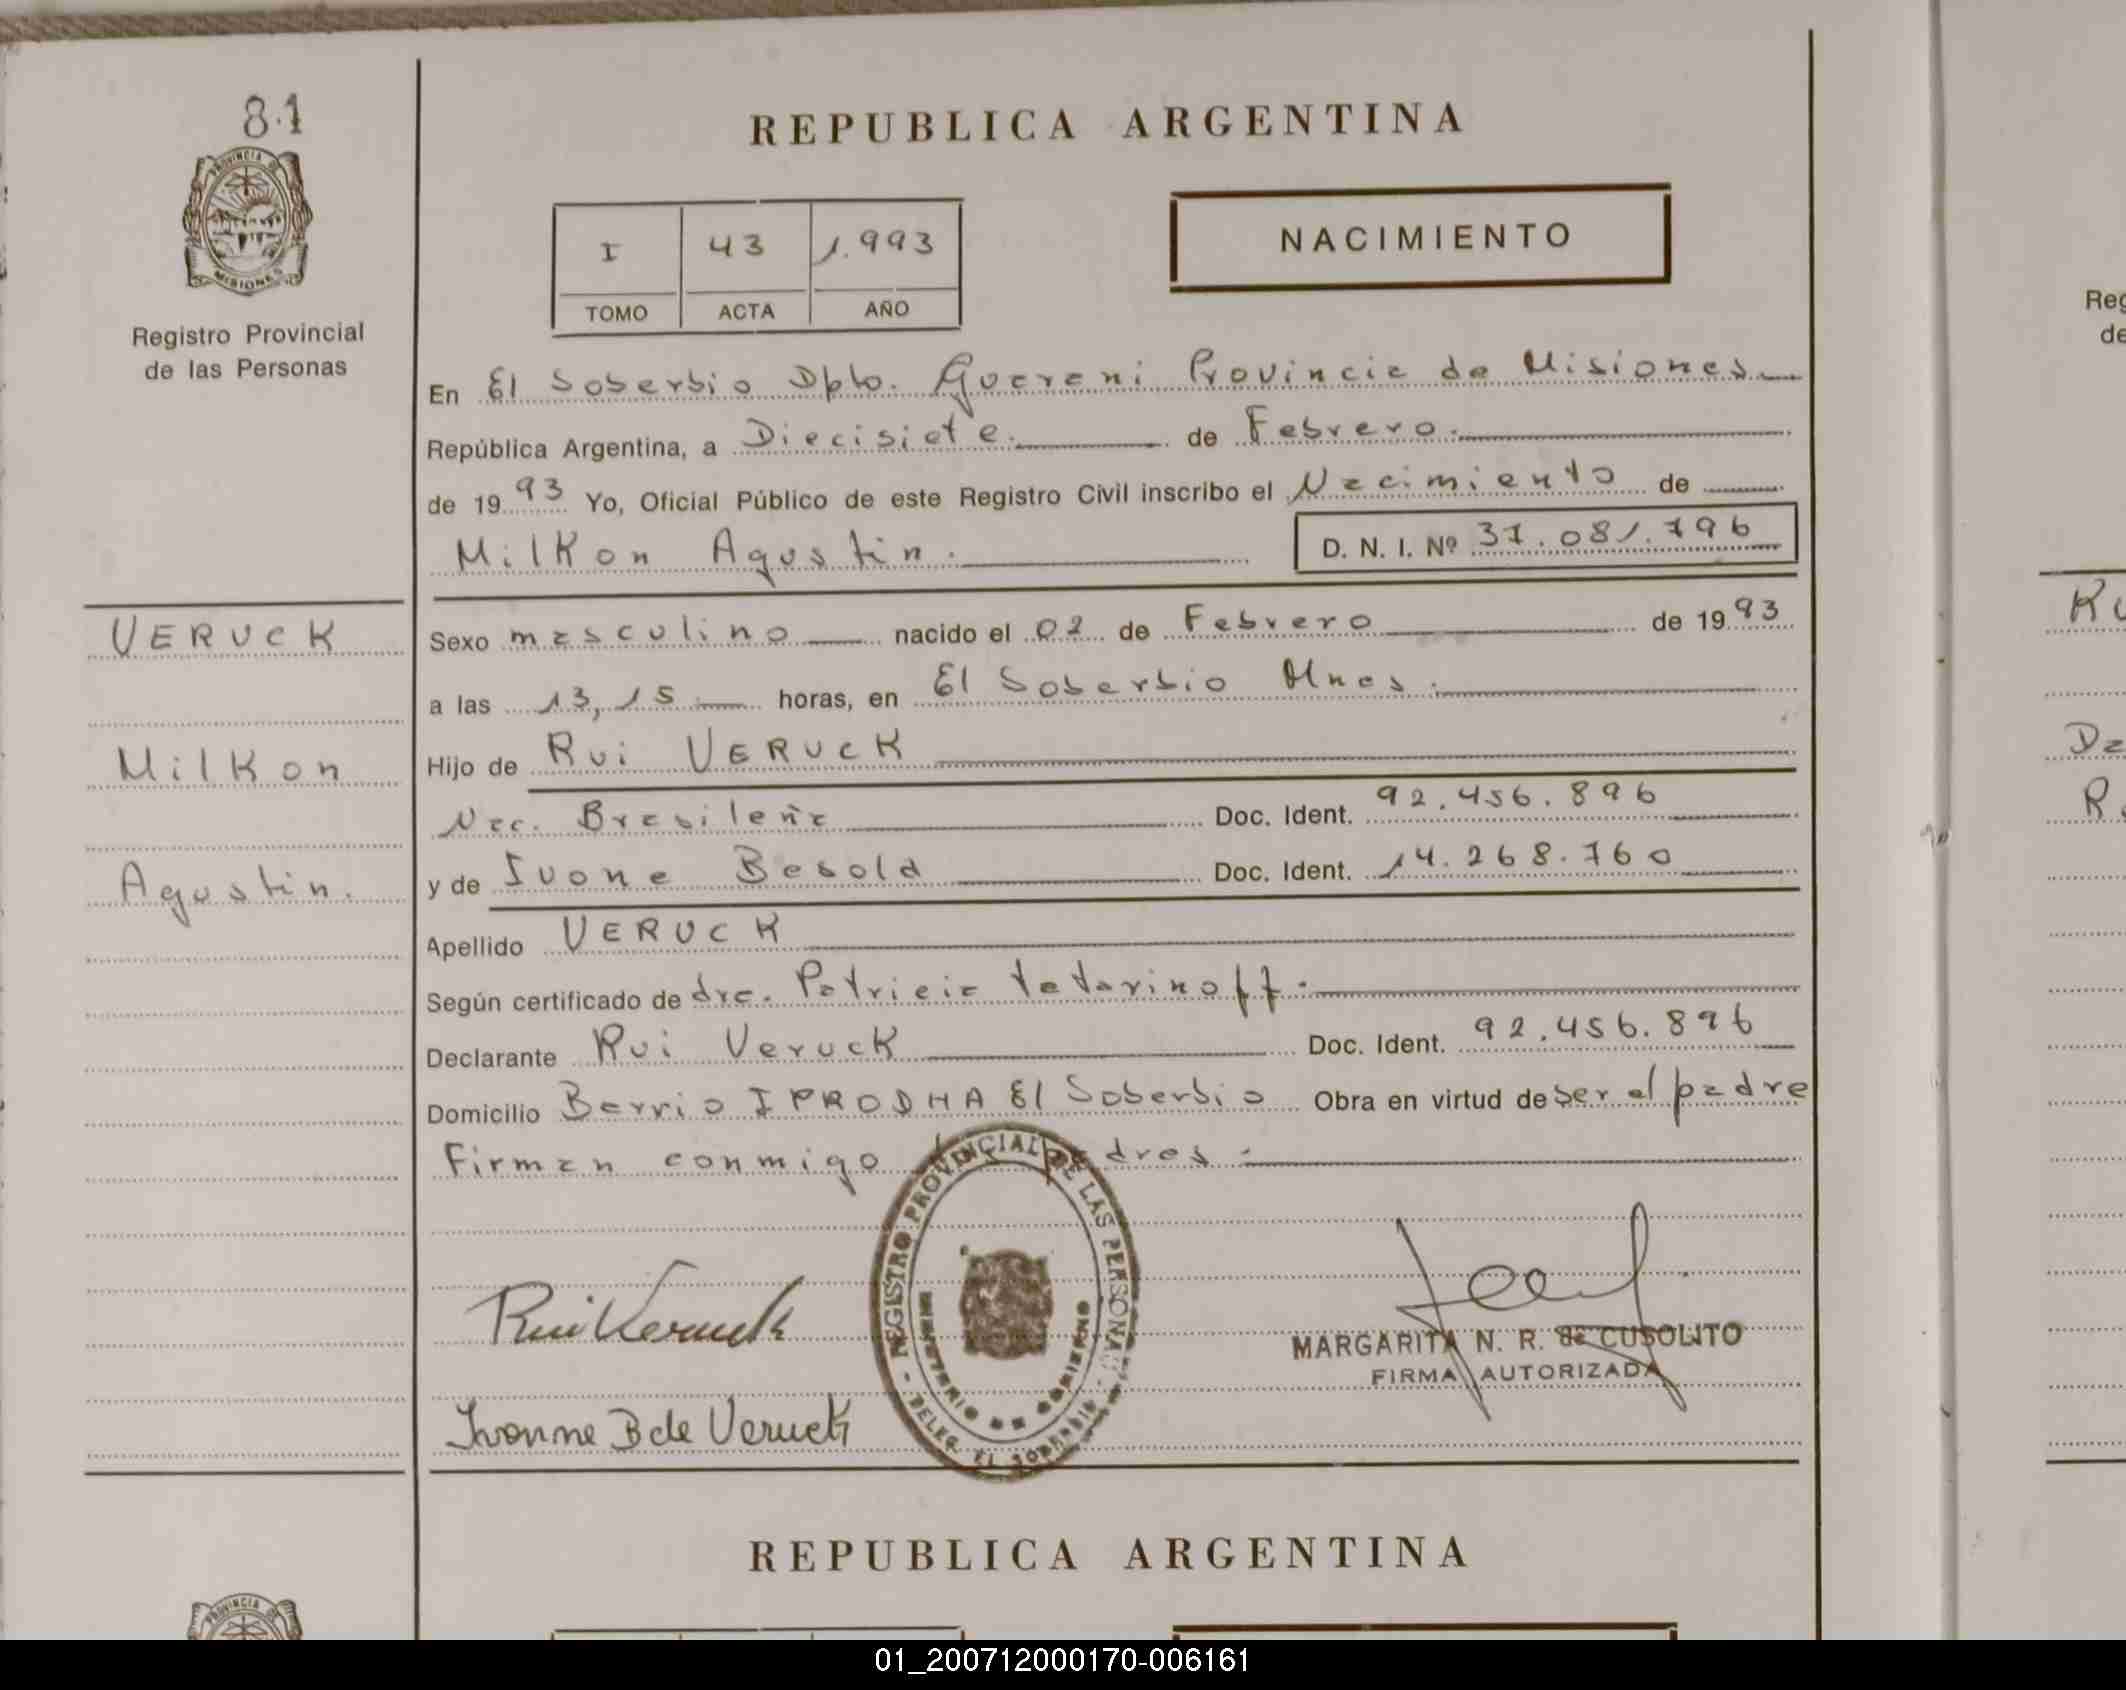 8.1
PROVINCIA DE
MISIONES
Registro Provincial
de las Personas
VERUCK
Milkon
Agustin.
REPUBLICA ARGENTINA
I 43 1.993
TOMO ACTA AÑO
NACIMIENTO
En El Soberbio Dpto. Guarani Provincia de Misiones.
República Argentina, a Diecisiete. de Febrero.
de 1993 Yo, Oficial Público de este Registro Civil inscribo el Nacimiento de
Milkon Agustin. D. N. I. Nº 37.081.796
Sexo masculino nacido el 02 de Febrero de 1993
a las 13,15 horas, en El Soberbio Mnes.
Hijo de Rui VERUCK
Nac. Brasileña Doc. Ident. 92.456.896
y de Ivone Besold Doc. Ident. 14.268.760
Apellido VERUCK
Según certificado de dra. Patricia tatarinoff.
Declarante Rui Veruck Doc. Ident. 92.456.896
Domicilio Barrio IPRODHA El Soberbio Obra en virtud de ser el padre
Firman conmigo dres.
REGISTRO PROVINCIAL DE LAS PERSONAS
MINISTERIO DE GOBIERNO
DELEG. EL SOBERBIO
Rui Veruck
Ivonne B de Veruck
MARGARITA N. R. de CUSOLITO
FIRMA AUTORIZADA
REPUBLICA ARGENTINA
PROVINCIA DE
Reg
de
Ku
Da
R
01_200712000170-006161